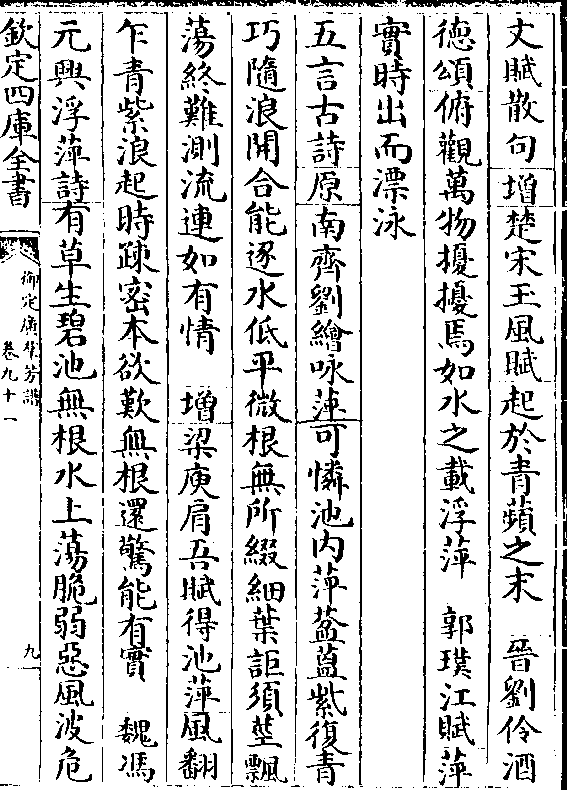 文賦散句增楚宋玉風賦起於青蘋之末　晉劉伶酒
德頌俯觀萬物擾擾焉如水之載浮萍　郭璞江賦萍
實時出而漂泳
五言古詩原南齊劉繪咏萍可憐池內萍葐蒕紫復青
巧隨浪開合能逐水低平微根無所綴細葉詎須莖飄
蕩終難測流連如有情　增梁庾肩吾賦得池萍風翻
乍青紫浪起時疎密本欲歎無根還驚能有實　魏馮
元興浮萍詩有草生碧池無根水上蕩脆弱惡風波危
欽定四庫全書
御定廣羣芳譜
卷九十一
九